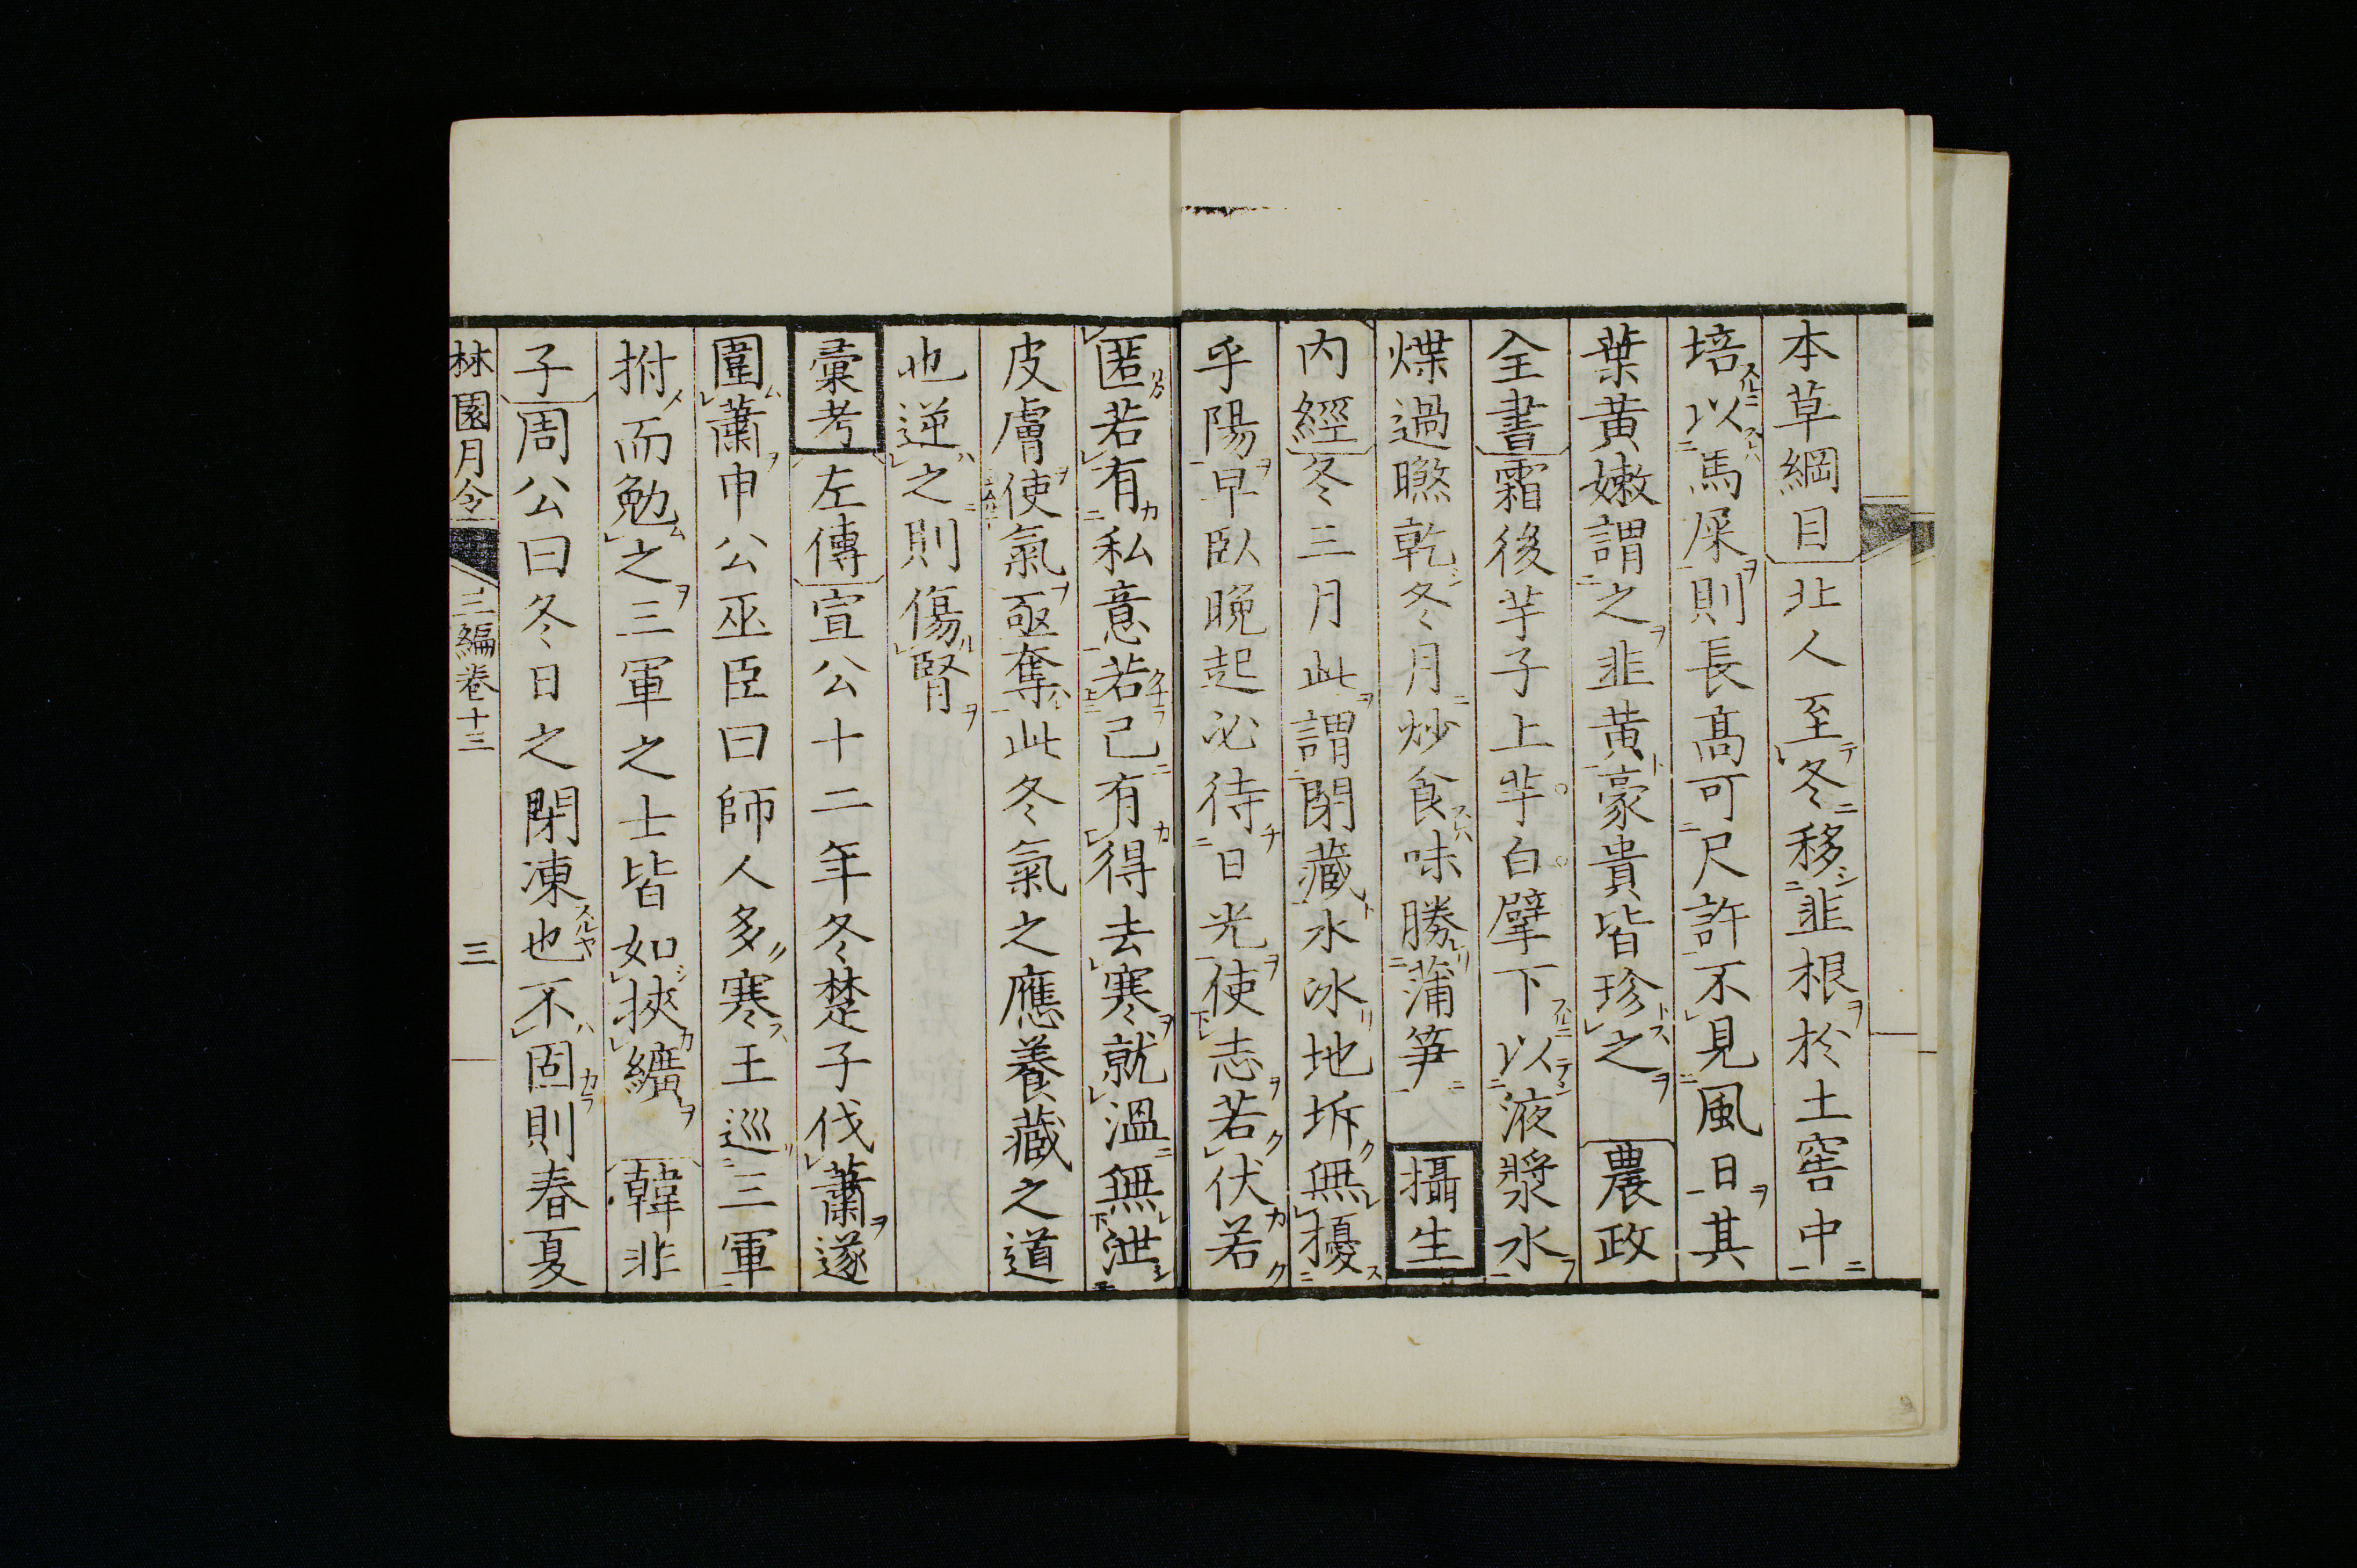 本草綱目北人至冬移韭根於土窖中
培以馬屎則長高可尺許不見風日其
葉黄嫩謂之韭黄豪貴皆珍之農政
全書霜後芋子上芋白擘下以液漿水
煠過曬乾冬月炒食味勝蒲笋攝生
内經冬三月此謂閉藏水冰地坼無擾
乎陽早臥晚起必待日光使志若伏若
匿若有私意若己有得去寒就溫無泄
皮膚使氣亟奪此冬氣之應養藏之道
也逆之則傷腎
彙考左傳宣公十二年冬楚子伐蕭遂
圍蕭申公巫臣曰師人多寒王巡三軍
拊而勉之三軍之士皆如挾纊韓非
子周公曰冬日之閉凍也不固則春夏
林園月令 三編卷十三 三